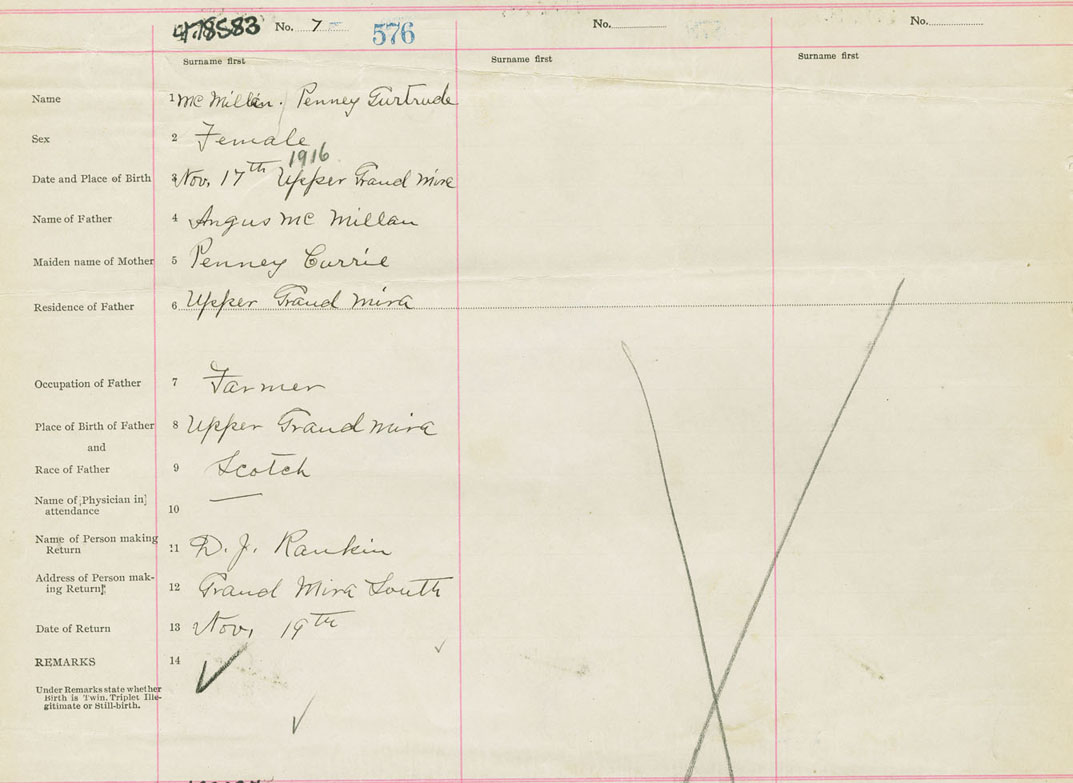 478583 No. 7 576 No. No.
Surname first Surname first Surname first
Name 1 Mc Millan. Penney Gurtrude
Sex 2 Female
1916
Date and Place of Birth 3 Nov. 17th Upper Grand Mira
Name of Father 4 Angus Mc Millan
Maiden name of Mother 5 Penney Currie
Residence of Father 6 Upper Grand Mira
Occupation of Father 7 Farmer
Place of Birth of Father 8 Upper Grand Mira
and
Race of Father 9 Scotch
Name of [Physician in]
attendance 10 —
Name of Person making
Return 11 D. J. Rankin
Address of Person mak-
ing Return 12 Grand Mira South
Date of Return 13 Nov. 19th
REMARKS 14
Under Remarks state whether
Birth is Twin, Triplet Ille-
gitimate or Still-birth.